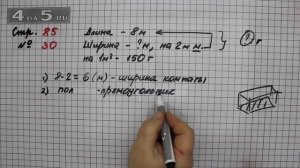 4DA5.RU
Стр. 85
№ 30
Длина - 8 м
Ширина - ? м, на 2 м м.
на 1 м² - 150 г
? г
1) 8-2=6 (м) - ширина комнаты
2) пол - прямоугольник